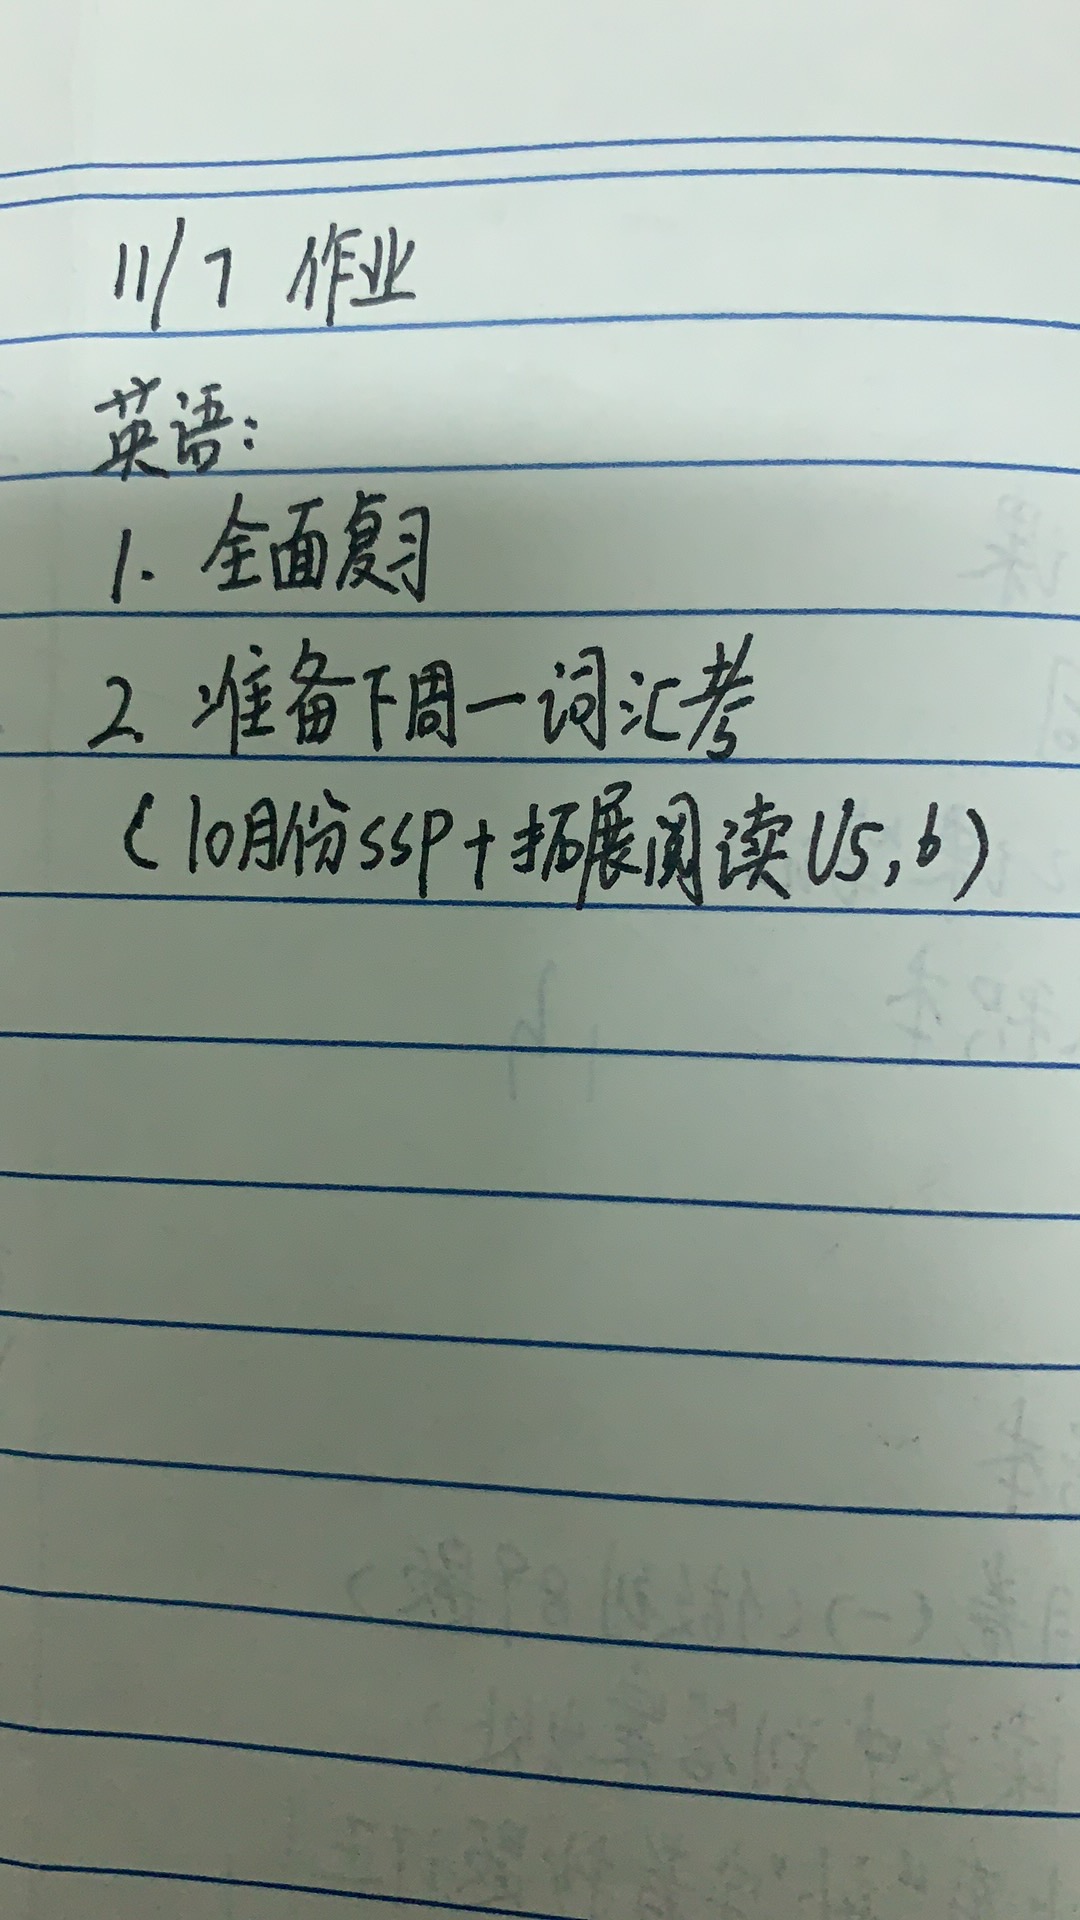 11/7 作业
英语:
1. 全面复习
2. 准备下周一词汇考
(10月份SSP+拓展阅读U5,6)